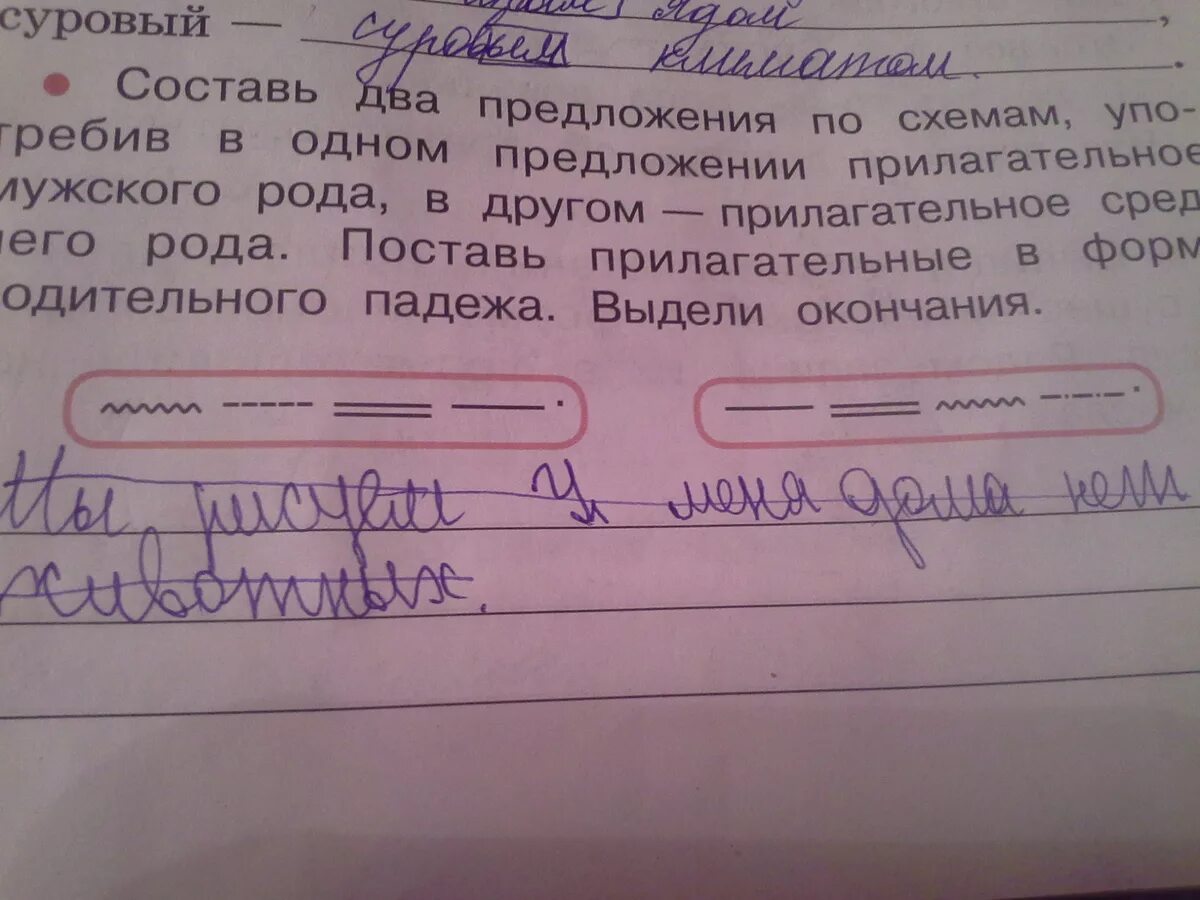 суровый — суровым климатом.
ядом,
• Составь два предложения по схемам, упо-
требив в одном предложении прилагательное
мужского рода, в другом — прилагательное сред
него рода. Поставь прилагательные в форм
одительного падежа. Выдели окончания.
Мы рисуем У меня дома нет
животных.